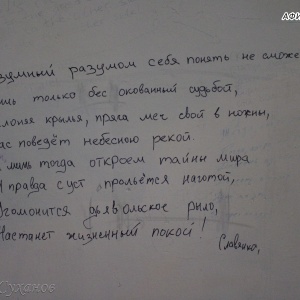 АФИ
зумный разумом себя понять не може
шь только бес окованный судьбой,
лоняя крылья, пряга меч свой в ножны,
ас поведёт небесною рекой.
И лишь тогда откроем тайны мира
И правда с уст прольётся наготой,
Угомонится дьявольское рыло,
Настанет жизненный покой!
Славянка,
Суханов